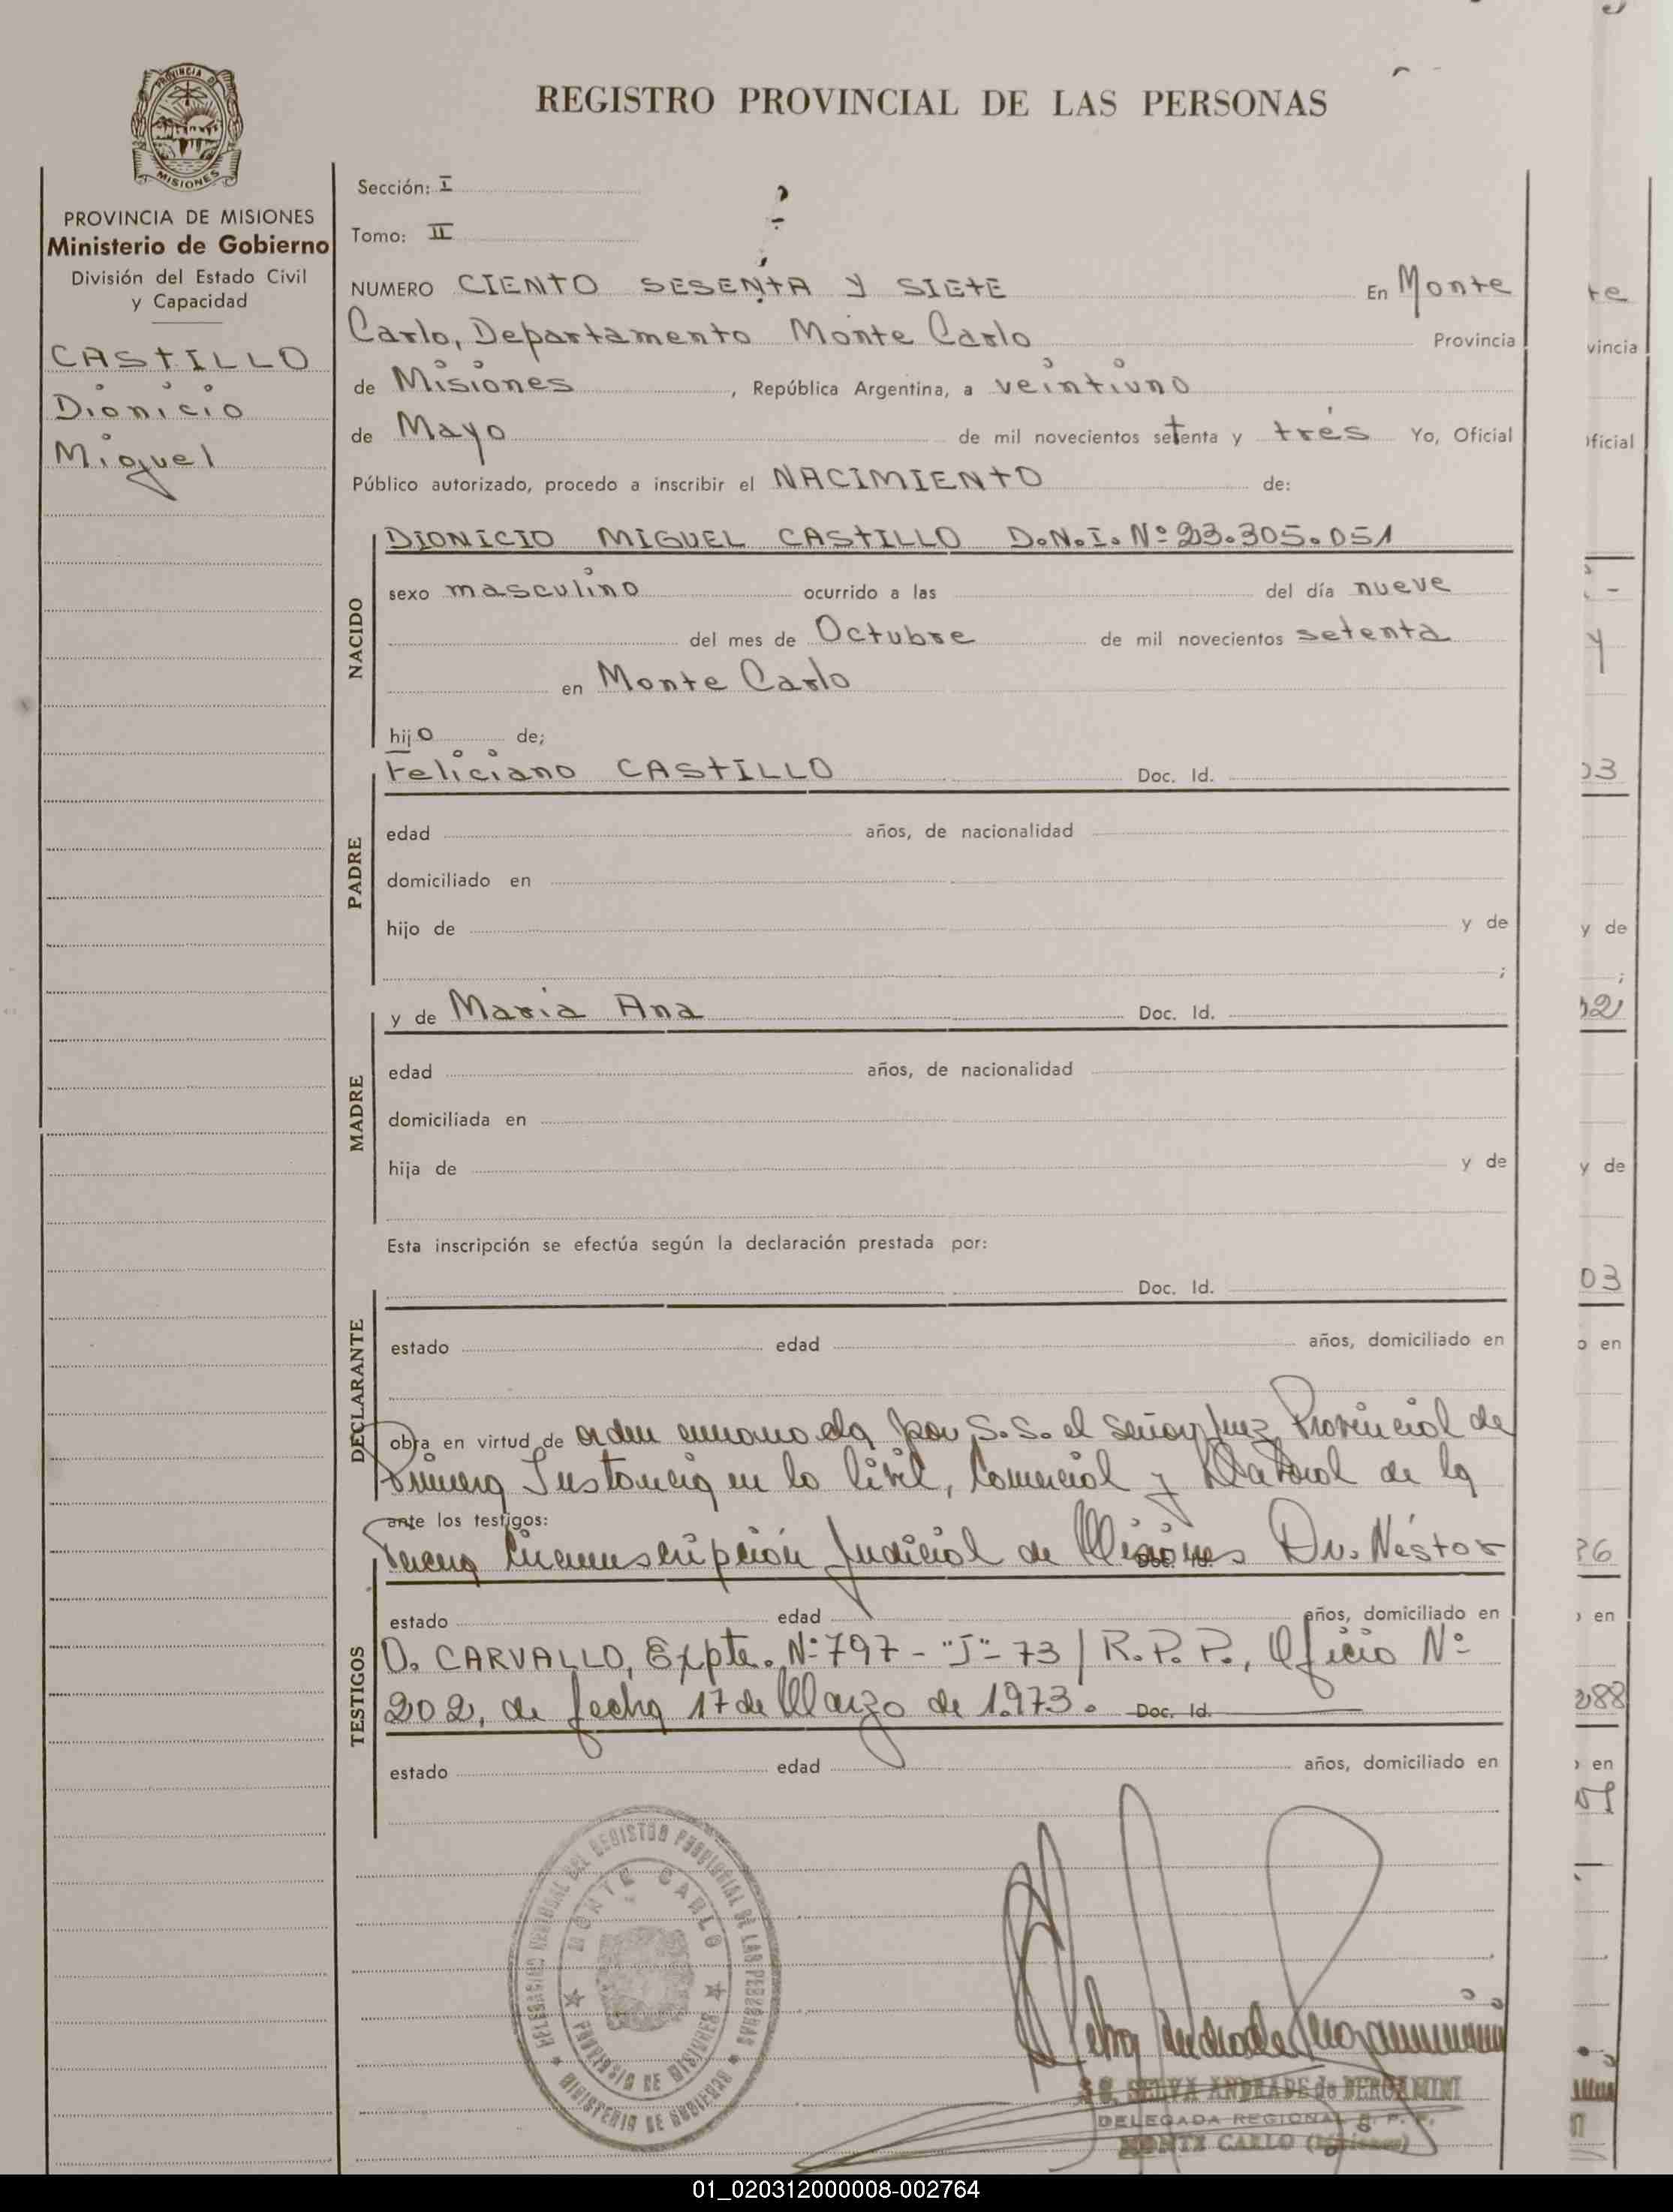 REGISTRO PROVINCIAL DE LAS PERSONAS
PROVINCIA DE MISIONES
PROVINCIA DE MISIONES
Ministerio de Gobierno
División del Estado Civil
y Capacidad
CASTILLO
Dionicio
Miguel
Sección: I
Tomo: II
NUMERO CIENTO SESENTA Y SIETE En Monte
Carlo, Departamento Monte Carlo Provincia
de Misiones, República Argentina, a veintiuno
de Mayo de mil novecientos setenta y trés Yo, Oficial
Público autorizado, procedo a inscribir el NACIMIENTO de:
NACIDO
DIONICIO MIGUEL CASTILLO D.N.I. Nº 23.305.051
sexo masculino ocurrido a las del día nueve
del mes de Octubre de mil novecientos setenta
en Monte Carlo
hijo de;
PADRE
Feliciano CASTILLO Doc. Id.
edad años, de nacionalidad
domiciliado en
hijo de y de
;
MADRE
y de Maria Ana Doc. Id.
edad años, de nacionalidad
domiciliada en
hija de y de
Esta inscripción se efectúa según la declaración prestada por:
DECLARANTE
Doc. Id.
estado edad años, domiciliado en
obra en virtud de orden emanada por S.S. el Señor Juez Provincial de
Primera Instancia en lo Civil, Comercial y Laboral de la
ante los testigos:
Tercera Circunscripción Judicial de Misiones Dr. Néstor
TESTIGOS
estado edad años, domiciliado en
O. CARVALLO, Expte. Nº 797-"J"-73/R.P.P., Oficio Nº
202, de fecha 17 de Marzo de 1.973. Doc. Id.
estado edad años, domiciliado en
DELEGACION REGIONAL DEL REGISTRO PROVINCIAL DE LAS PERSONAS
MINISTERIO DE GOBIERNO
MONTE CARLO
PROVINCIA DE MISIONES
SELVA ANDRADE de BERGAMINI
DELEGADA REGIONAL R. P. P.
MONTE CARLO (Misiones)
te
vincia
oficial
y
03
y de
;
y de
03
o en
26
en
288
en
01_020312000008-002764